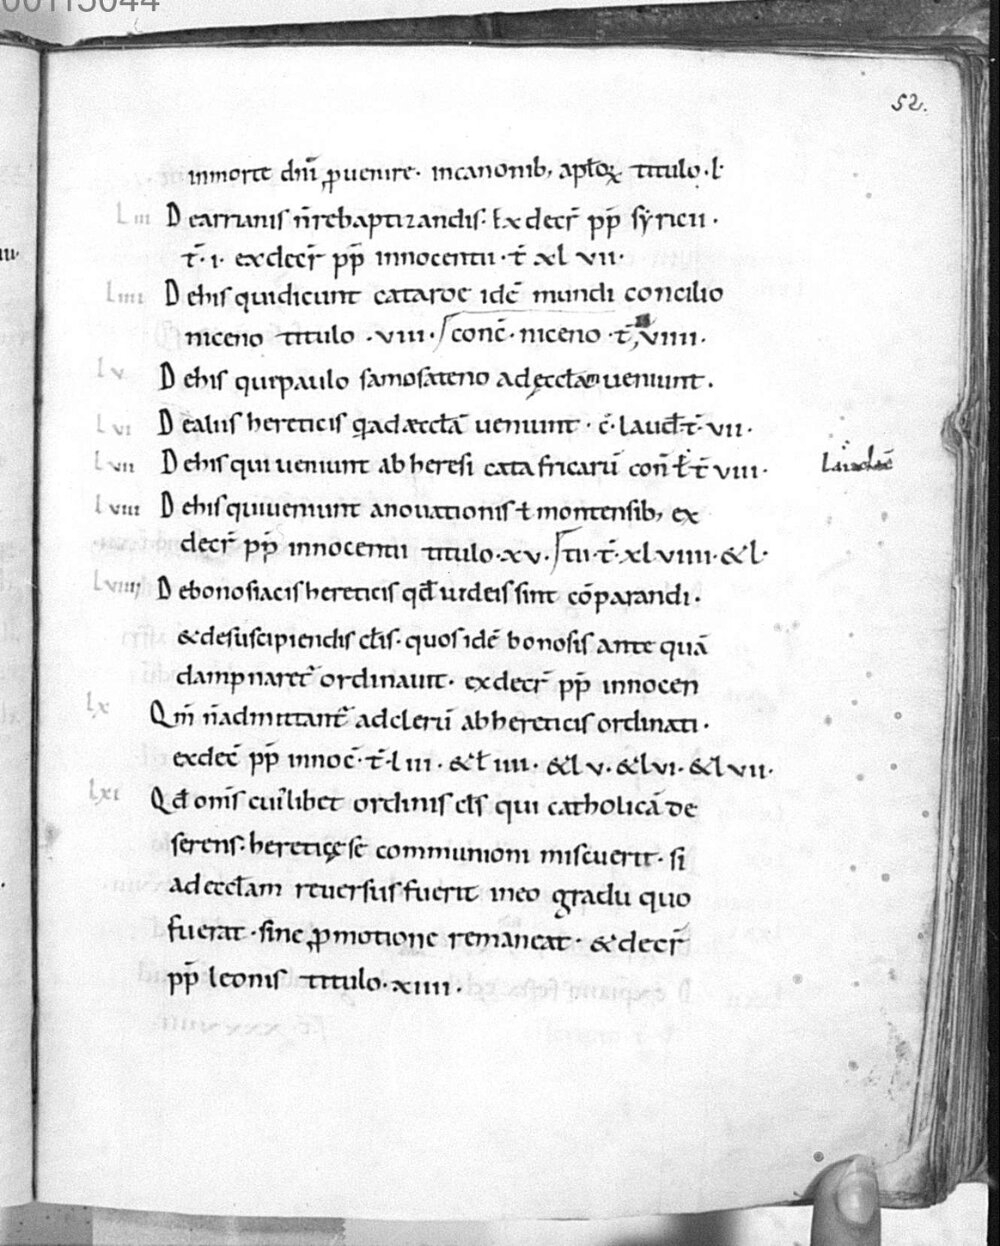 00115044
52.
inmorte dnī ꝓuenire· incanonib; aptoꝝ titulo·l·
Liii De arrianis n̄rebaptizandis· Ex decr̄ pp̄ syricii·
t̄·i· exdecr̄ pp̄ innocentii·t̄ xl vii·
Liiii De his quidicunt cataroe idē mundi concilio
niceno titulo ·viii· conc̄· niceno ·t̄ viiii·
Lv De his qui paulo samosateno ad ęcctam ueniunt·
Lvi De aliis hereticis q ad æcctā ueniunt· c̄· laud t̄· vii·
Lvii De his qui ueniunt ab heresi cata fricarū con t̄ viii·
Lviii De his qui ueniunt anouationis ł montensib; ex
decr̄ pp̄ innocentii titulo·xv· t̄· xl viiii· &l·
Lviiii De bonosiacis hereticis qđ iudeis sint cōparandi·
&desuscipiendis clis· quos idē bonosis ante quā
dampnaret ordinauit· ex decr̄ pp̄ innocen
Lx Qm̄ n̄admittant ad clerū ab hereticis ordinati·
exdec̄ pp̄ innoc̄·t̄·l iii· &l iiii· &l v· &lvi· &l vii·
Lxi Qđ om̄is cuiuslibet ordinis cls qui catholicā de
serens· heretice se communioni miscuerit· si
ad ecctam reuersus fuerit in eo gradu quo
fuerat· sine ꝓmotione remaneat· & decr̄
pp̄ leonis titulo·xiiii·